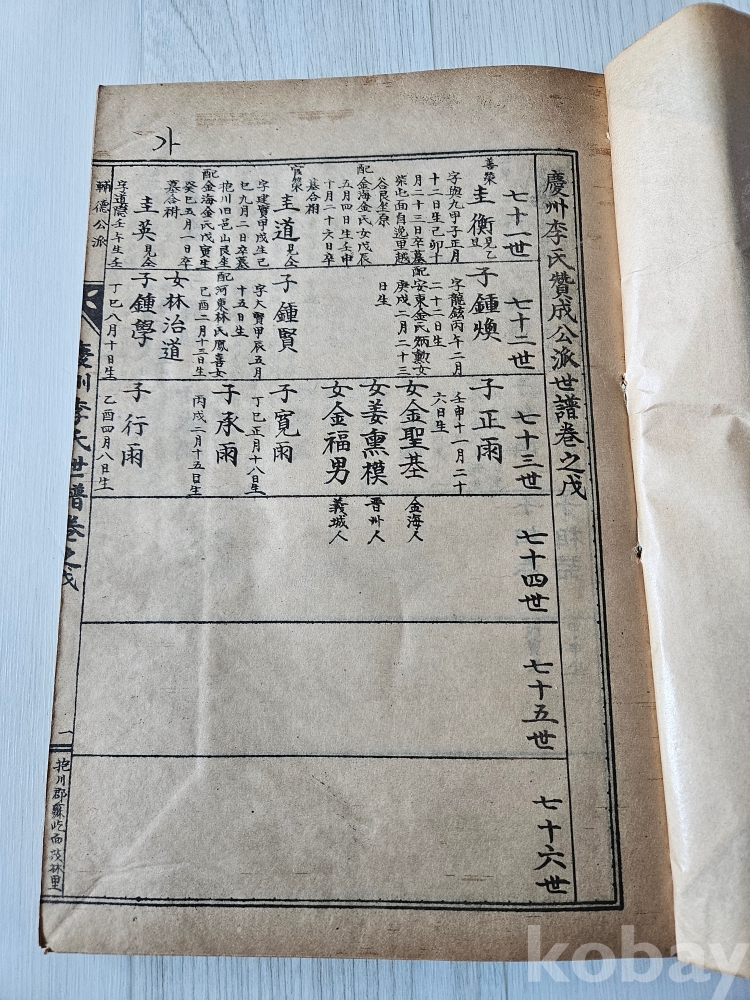 가
慶州李氏贊成公派世譜卷之戊
七十一世
七十二世
七十三世
七十四世
七十五世
七十六世
善榮
圭衡
見乙
字與九甲子正月
十二日生己卯十
月二十三日卒墓
柴屯面自逸里越
谷艮坐原
配金海金氏女戊辰
五月四日生壬申
十月二十六日卒
墓合祔
官榮
圭道
見仝
字建寶甲戌生己
巳九月二日卒墓
抱川旧邑山艮坐
配金海金氏戊寅生
癸巳五月一日卒
墓合祔
圭英
見仝
字道隱壬午生壬
子鍾煥
字龍鉉丙午二月
二十二日生
配安東金氏炳勲女
庚戌二月二十三
日生
子鍾賢
字大賢甲辰五月
十五日生
配河東林氏鳳喜女
己酉二月十三日生
女林治道
子鍾學
丁巳八月十日生
子正雨
壬申十一月二十
六日生
女金聖基
女姜熏模
女金福男
子寬雨
丁巳正月十八日生
子承雨
丙戌二月十五日生
子行雨
乙酉四月八日生
金海人
晋州人
義城人
輔德公派
慶州李氏世譜卷之戊
一
抱川郡蘇屹面茂林里
kobay